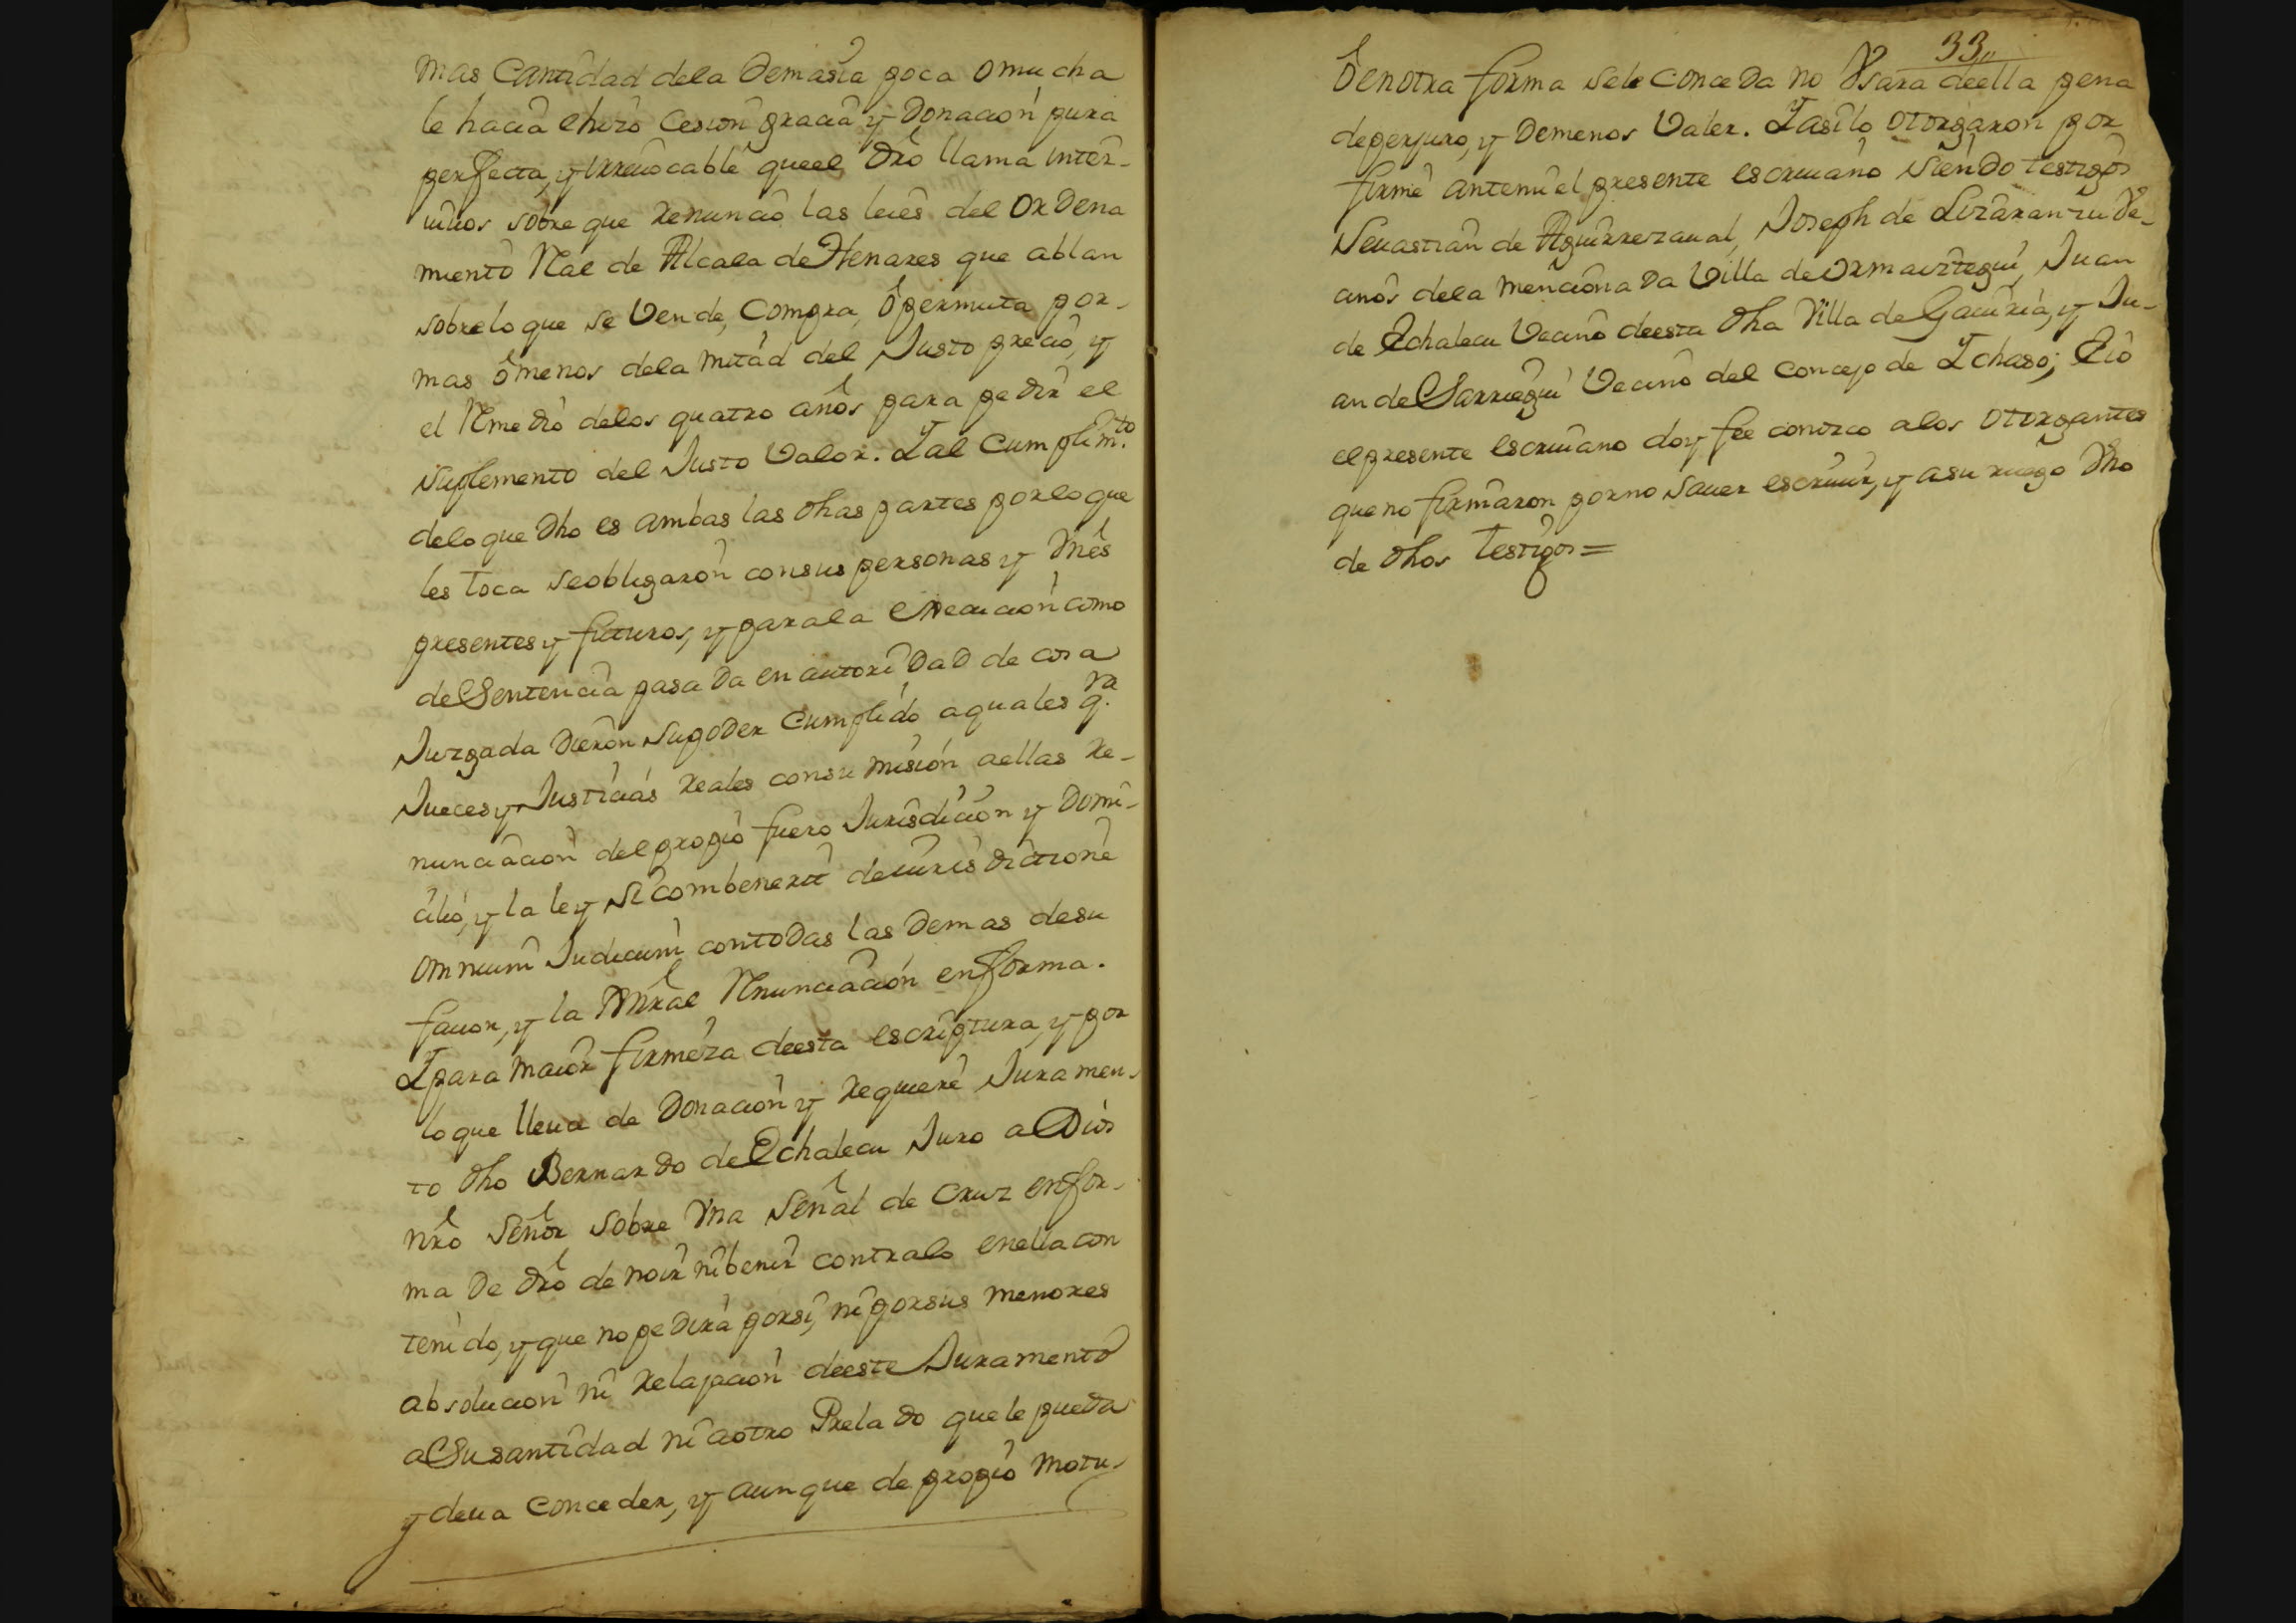 mas Cantidad dela Demasia poca o mucha
le hacia e hizo Cesion gracia y Donacion pura
perfecta, y irreuocable que el dro llama inter-
uiuos sobre que Renuncio las leies del Ordena
miento Rãl de Alcala de Henares que ablan
sobre lo que se Vende, Compra, ô permuta por-
mas ô menos dela mitad del Justo precio, y
el Rmedio delos quatro años para pedir el
Suplemento del Justo Valor. Y al Cumplim.to
delo que dho es ambas las dhas partes por lo que
les toca se obligaron con sus personas y vnês
presentes y futuros, y para la execucion como
de Sentencia pasada en autoridad de cosa
Juzgada Dieron su poder Cumplido a quales q.ra
Jueces y Justicias Reales con su mision a ellas Re-
nunciacion del propio fuero Jurisdicion y Domi-
cilio, y la ley si combenerit de iuris dictione
omnium Judicum con todas las Demas de su
fauor, y la Gnrâl Rnunciacion en forma.
Y para maior firmeza de esta escriptura, y por
lo que lleua de Donacion y Requiere Juramen-
to dho Bernardo de Echalecu Juro a Dios
nrô Señor sobre Vna Señal de Cruz en for-
ma De drô de no ir ni benir contra lo en ella con
tenido, y que no pedira por si, ni por sus menores
absolucion ni Relajacion de este Juramento
a Su santidad ni a otro Prelado que le pueda
y deua Conceder, y aunque de propio motu-
33,,
ô en otra forma sele Conceda no Vsara de ella pena
de perjuro, y Demenos Valer. Y asi lo otorgaron por
firme ante mi el presente escriuano siendo testigos
Seuastian de Aguirrezaual, Joseph de Lizaranzu Ve-
cinos dela mencionada Villa de Ormaiztegui, Juan
de Echalecu Vecino de esta dha Villa de Gauiria, y Ju-
an de Sarriegui Vecino del Concejo de Ichaso; E io
el presente escriuano doy fee conozco a los otorgantes
que no firmaron por no sauer escriuir, y a su ruego Vno
de dhos testigos =